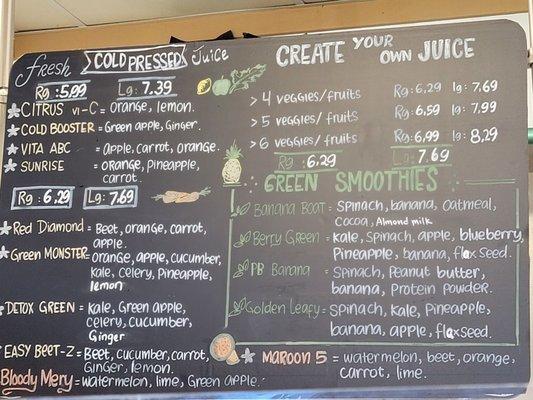 fresh COLD PRESSED Juice
Rg: 5.99 Lg: 7.39
CITRUS Vi-C = orange, lemon.
COLD BOOSTER = Green apple, Ginger.
VITA ABC = apple, carrot, orange.
SUNRISE = orange, Pineapple,
carrot.
Rg: 6.29 Lg: 7.69
Red Diamond = Beet, orange, carrot,
apple.
Green MONSTER = orange, apple, cucumber,
kale, celery, Pineapple,
lemon
DETOX GREEN = kale, Green apple,
celery, cucumber,
Ginger
EASY BEET-Z = Beet, cucumber, carrot,
Ginger, lemon.
Bloody Mery = watermelon, lime, Green apple.
CREATE YOUR OWN JUICE
> 4 veggies/fruits Rg: 6.29 lg: 7.69
> 5 veggies/fruits Rg: 6.59 lg: 7.99
> 6 veggies/fruits Rg: 6.99 lg: 8.29
Rg: 6.29 LG: 7.69
GREEN SMOOTHIES
Banana Boat = Spinach, banana, oatmeal,
cocoa, Almond milk
Berry Green = kale, Spinach, apple, blueberry,
Pineapple, banana, flax seed.
PB Banana = Spinach, Peanut butter,
banana, Protein powder.
Golden Leafy = Spinach, kale, Pineapple,
banana, apple, flaxseed.
MAROON 5 = watermelon, beet, orange,
carrot, lime.